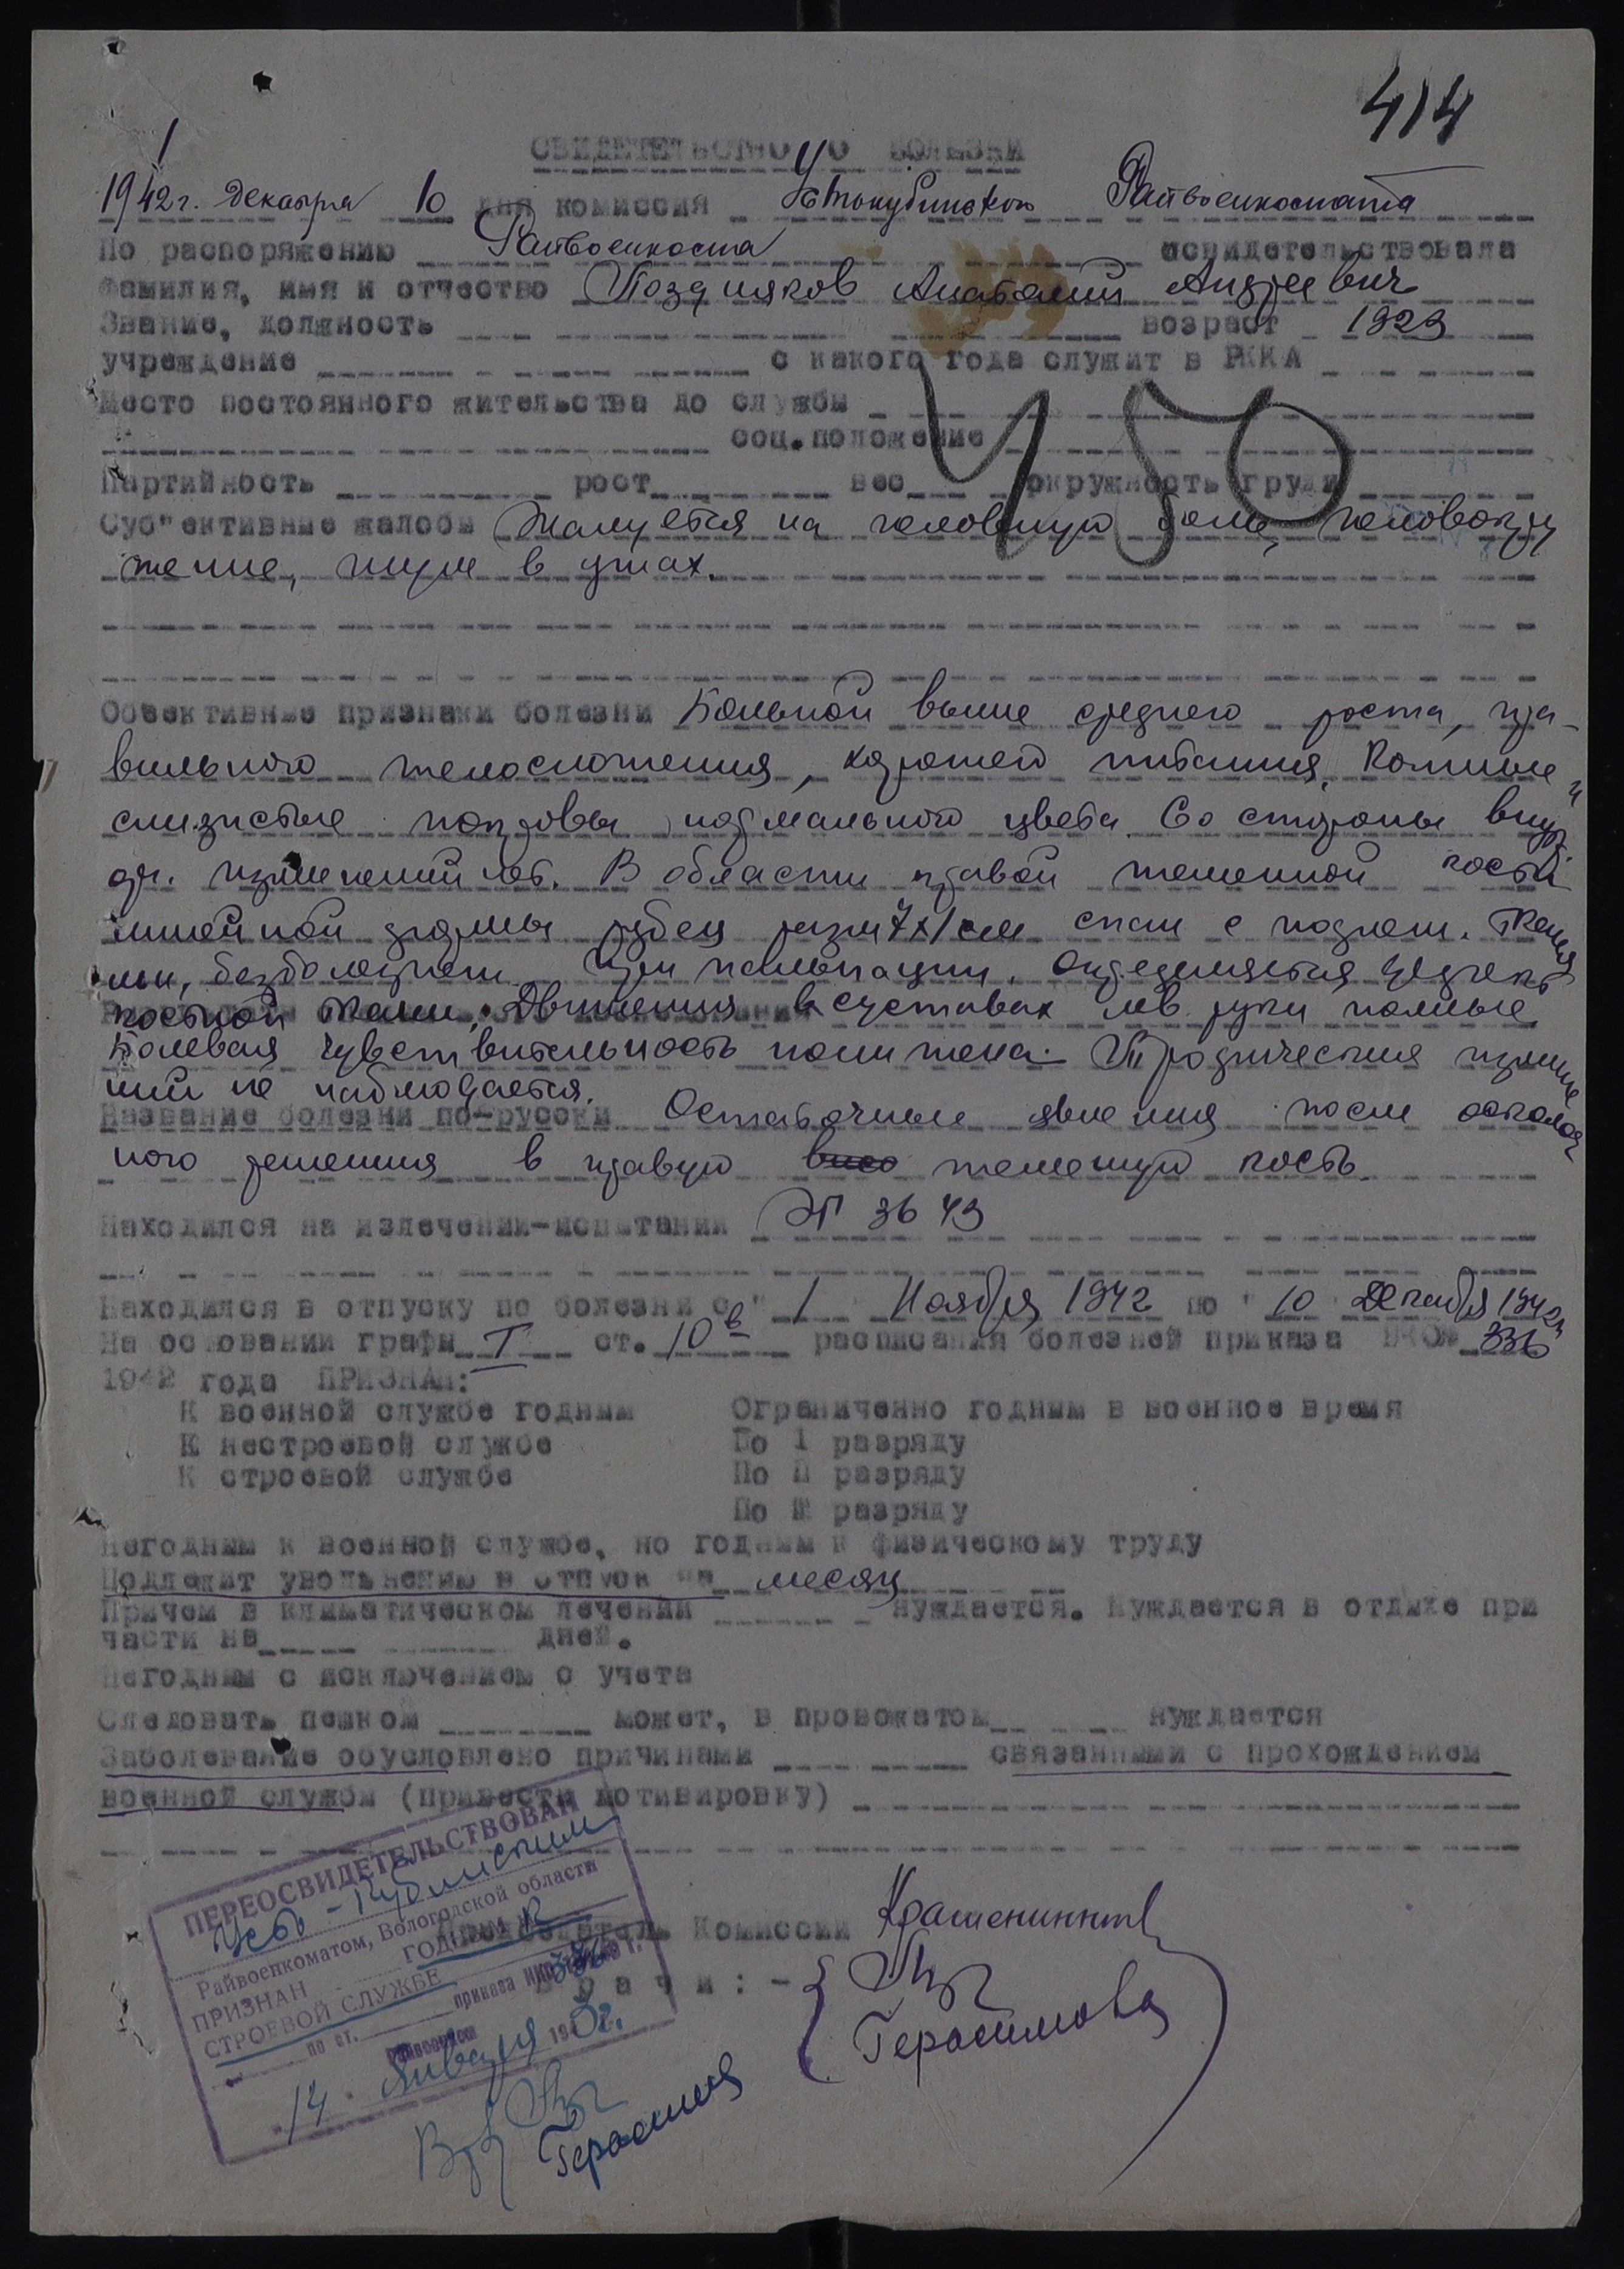 414
1
СВИДЕТЕЛЬСТВО О БОЛЕЗНИ
1942г. Декабря 10 дня комиссия Устькубинского Райвоенкомата
По распоряжению Райвоенкома освидетельствовала
Фамилия, имя и отчество Поздняков Анатолий Андреевич
Звание, должность возраст 1923
учреждение с какого года служит в РККА
Место постоянного жительства до службы
соц.положение
450
Партийность рост вес окружность груди
Суб"ективные жалобы Жалуется на головную боль, головокру
жение, шум в ушах.
Обективные признаки болезни Больной выше среднего роста, пра-
вильного телосложения, хорошего питания. Кожные и
слизистые покровы нормального цвета. Со стороны внутр.
орг. изменений нет. В области правой теменной кости
линейной формы рубец разм 7х1см спаян с подлеж. тканя
ми, безболезнен при пальпации. Определяется дефект
костной ткани, Движения в суставах лев. руки полные
Болевая чувствительность понижена. Трофических измене
ний не наблюдается.
Название болезни по-русски Остаточные явления после осколоч
ного ранения в правую теменную кость.
Находился на излечении-испытании ЭГ 3643
Находился в отпуску по болезни с " 1 Ноября 1942 по " 10 Декабря 1942г
На основании графы I ст. 10в расписания болезней приказа НКО№ 336
1942 года ПРИЗНАН:
К военной службе годным Ограниченно годным в военное время
К нестроевой службе По I разряду
К строевой службе По П разряду
По Ш разряду
Негодным к военной службе, но годным к физическому труду
Подлежит увольнению в отпуск на месяц
Причем в климатическом лечении нуждается. Нуждается в отдыхе при
части на дней.
Негодным с исключением с учета
Следовать пешком может, в провожатом нуждается
Заболевание обусловлено причинами связанными с прохождением
военной службы (привести мотивировку)
ПЕРЕОСВИДЕТЕЛЬСТВОВАН
Усть-Кубинским
Райвоенкоматом, Вологодской области
ПРИЗНАН ГОДНЫМ К
СТРОЕВОЙ СЛУЖБЕ
по ст. приказа НКО 336
14 Января 1943г.
Председатель Комиссии Крашенинник
Врачи:-
Герасимова
Герасимов